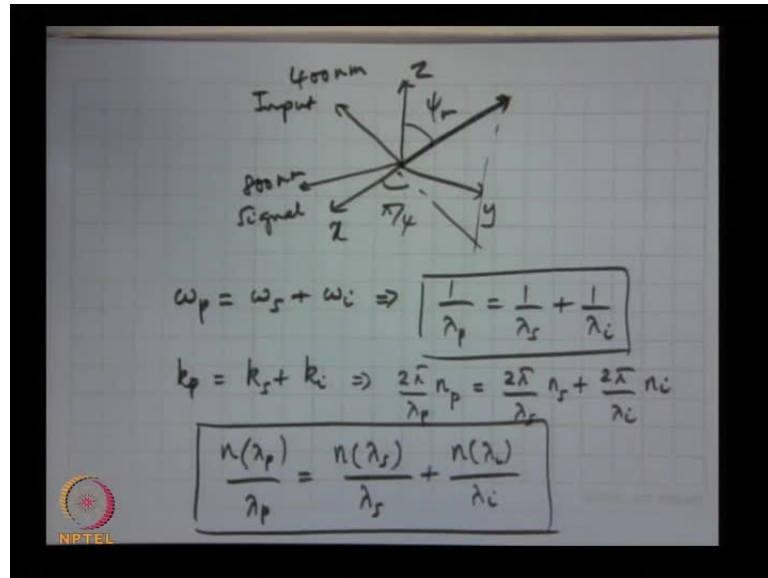 400nm
Input
z
ψm
800nm
Signal
x
π/4
y
ωp = ωs + ωi ⇒ 1/λp = 1/λs + 1/λi
kp = ks + ki ⇒ 2π/λp np = 2π/λs ns + 2π/λi ni
n(λp)/λp = n(λs)/λs + n(λi)/λi
NPTEL